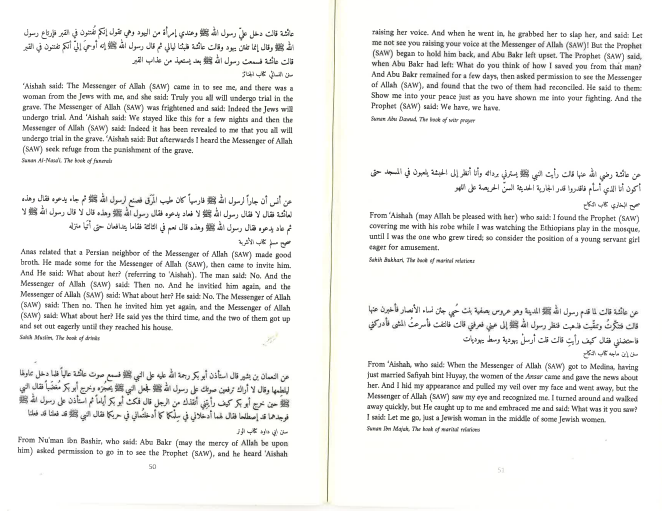 عائشة قالت دخل علي رسول الله ﷺ وعندي إمرأة من اليهود وهي تقول إنكم تُفتنون في القبر فإرتاع رسول
الله ﷺ وقال إنما تفتن يهود وقالت عائشة فلبثنا ليالي ثم قال رسول الله ﷺ إنه أوحيَ إليّ أنكم تفتنون في القبر
قالت عائشة فسمعت رسول الله ﷺ بعد يستعيذ من عذاب القبر
سنن النسائي كتاب الجنائز
'Aishah said: The Messenger of Allah (SAW) came in to see me, and there was a
woman from the Jews with me, and she said: Truly you all will undergo trial in the
grave. The Messenger of Allah (SAW) was frightened and said: Indeed the Jews will
undergo trial. And 'Aishah said: We stayed like this for a few nights and then the
Messenger of Allah (SAW) said: Indeed it has been revealed to me that you all will
undergo trial in the grave. 'Aishah said: But afterwards I heard the Messenger of Allah
(SAW) seek refuge from the punishment of the grave.
Sunan Al-Nasa'i, The book of funerals
عن أنس أن جاراً لرسول الله ﷺ فارسياً كان طيب المرق فصنع لرسول الله ﷺ ثم جاء يدعوه فقال وهذه
لعائشة فقال لا فقال رسول الله ﷺ لا فعاد يدعوه فقال رسول الله ﷺ وهذه قال لا قال رسول الله ﷺ لا
ثم عاد يدعوه فقال رسول الله ﷺ وهذه قال نعم في الثالثة فقاما يتدافعان حتى أتيا منزله
صحيح مسلم كتاب الأشربة
Anas related that a Persian neighbor of the Messenger of Allah (SAW) made good
broth. He made some for the Messenger of Allah (SAW), then came to invite him.
And He said: What about her? (referring to 'Aisha). The man said: No. And the
Messenger of Allah (SAW) said: Then no. And he invitied him again, and the
Messenger of Allah (SAW) said: What about her? He said: No. The Messenger of Allah
(SAW) said: Then no. Then he invited him yet again, and the Messenger of Allah
(SAW) said: What about her? He said yes the third time, and the two of them got up
and set out eagerly until they reached his house.
Sahih Muslim, The book of drinks
عن النعمان بن بشير قال استأذن أبو بكر رحمة الله عليه على النبي ﷺ فسمع صوت عائشة عالياً فلما دخل تناولها
ليلطمها وقال لا أراك ترفعين صوتك على رسول الله ﷺ فجعل النبي ﷺ يحجزه وخرج أبو بكر مُغضَباً فقال النبي
ﷺ حين خرج أبو بكر كيف رأيتني أنقذتك من الرجل قال فمكث أبو بكر أياماً ثم استأذن على رسول الله ﷺ
فوجدهما قد إصطلحا فقال لهما أدخلاني في سلمكما كما أدخلتماني في حربكما فقال النبي ﷺ قد فعلنا قد فعلنا
سنن أبي داود كتاب الوتر
From Nu'man ibn Bashir, who said: Abu Bakr (may the mercy of Allah be upon
him) asked permission to go in to see the Prophet (SAW), and he heard 'Aishah
50
raising her voice. And when he went in, he grabbed her to slap her, and said: Let
me not see you raising your voice at the Messenger of Allah (SAW)! But the Prophet
(SAW) began to hold him back, and Abu Bakr left upset. The Prophet (SAW) said,
when Abu Bakr had left: What do you think of how I saved you from that man?
And Abu Bakr remained for a few days, then asked permission to see the Messenger
of Allah (SAW), and found that the two of them had reconciled. He said to them:
Show me into your peace just as you have shown me into your fighting. And the
Prophet (SAW) said: We have, we have.
Sunan Abu Dawud, The book of witr prayer
عن عائشة رضي الله عنها قالت رأيت النبي ﷺ يسترني بردائه وأنا أنظر إلى الحبشة يلعبون في المسجد حتى
أكون أنا الذي أسأم فاقدروا قدر الجارية الحديثة السنّ الحريصة على اللهو
صحيح البخاري كتاب النكاح
From 'Aishah (may Allah be pleased with her) who said: I found the Prophet (SAW)
covering me with his robe while I was watching the Ethiopians play in the mosque,
until I was the one who grew tired; so consider the position of a young servant girl
eager for amusement.
Sahih Bukhari, The book of marital relations
عن عائشة قالت لما قدم رسول الله ﷺ المدينة وهو عروس بصفية بنت حُيي جئن نساء الأنصار فأخبرن عنها
قالت فتنكّرتُ وتنقّبت فذهبت فنظر رسول الله ﷺ إلى عيني فعرفني قالت فالتفت فأسرعتُ المشي فأدركني
فاحتضنني فقال كيف رأيتِ قالت قلت أرسل يهودية وسط يهوديات
سنن إبن ماجه كتاب النكاح
From 'Aishah, who said: When the Messenger of Allah (SAW) got to Medina, having
just married Safiyah bint Huyay, the women of the Ansar came and gave the news about
her. And I hid my appearance and pulled my veil over my face and went away, but the
Messenger of Allah (SAW) saw my eye and recognized me. I turned around and walked
away quickly, but He caught up to me and embraced me and said: What was it you saw?
I said: Let me go, just a Jewish woman in the middle of some Jewish women.
Sunan Ibn Majah, The book of marital relations
51